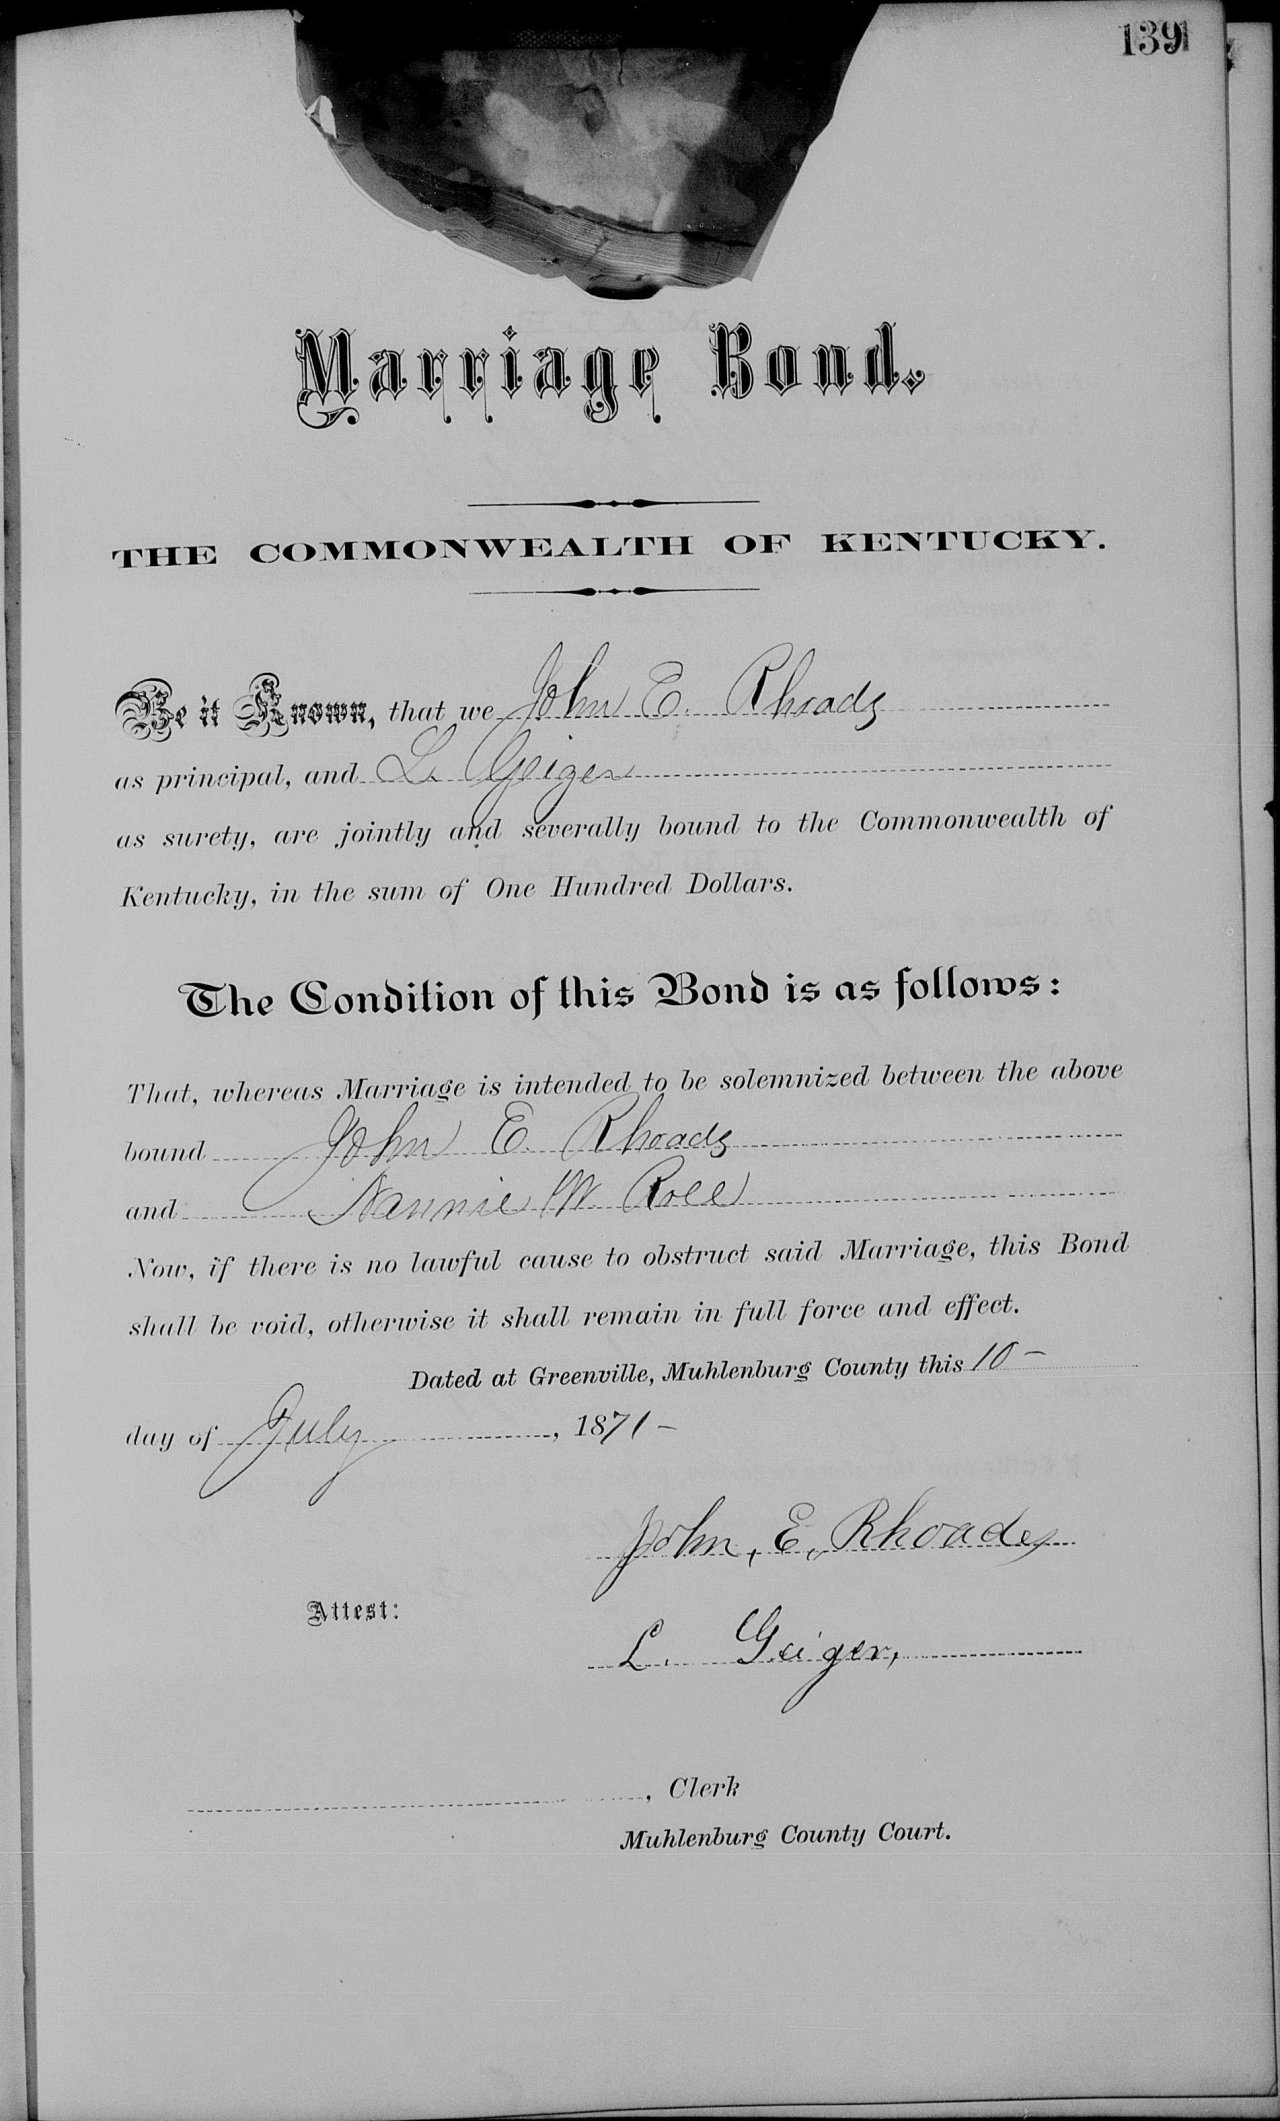 139
Marriage Bond.
THE COMMONWEALTH OF KENTUCKY.
Be it Known, that we John E. Rhoads
as principal, and L. Geiger
as surety, are jointly and severally bound to the Commonwealth of
Kentucky, in the sum of One Hundred Dollars.
The Condition of this Bond is as follows:
That, whereas Marriage is intended to be solemnized between the above
bound John E. Rhoads
and Nannie W. Roll
Now, if there is no lawful cause to obstruct said Marriage, this Bond
shall be void, otherwise it shall remain in full force and effect.
Dated at Greenville, Muhlenburg County this 10 -
day of July, 1871 -
John, E. Rhoades
Attest:
L. Geiger,
, Clerk
Muhlenburg County Court.